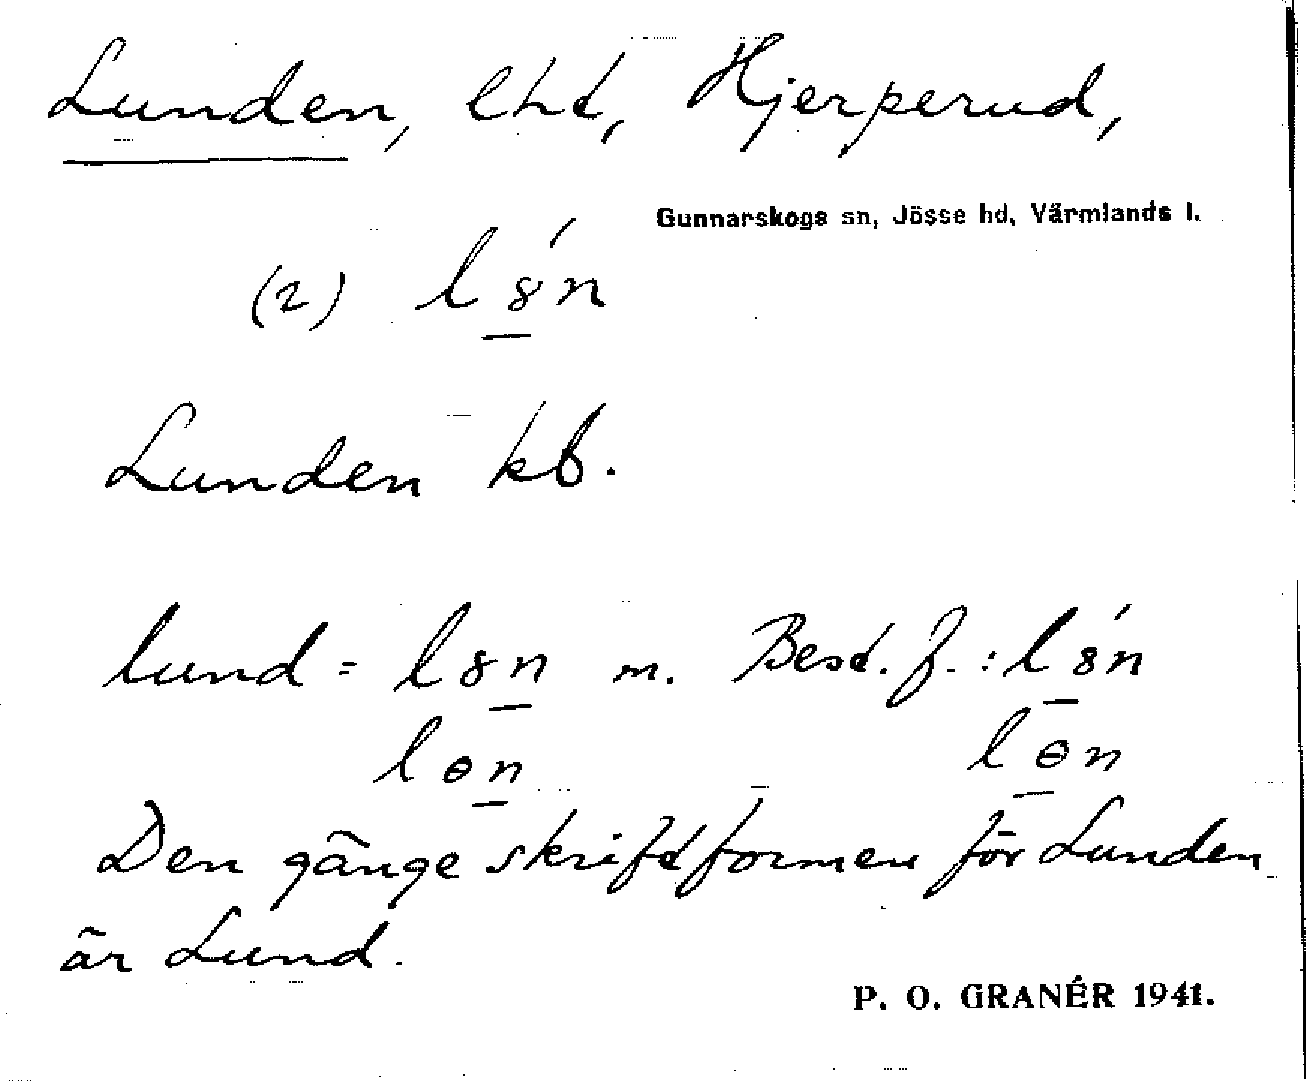 Lunden, lht, Hjerperud,
Gunnarskogs sn, Jösse hd, Värmlands l.
(2) l8́n
Lunden kb.
lund = l8n m. Best. f. : l8́n
lɵn lɵn
Den gänge skriftformen för Lunden
är Lund.
P. O. GRANÉR 1941.